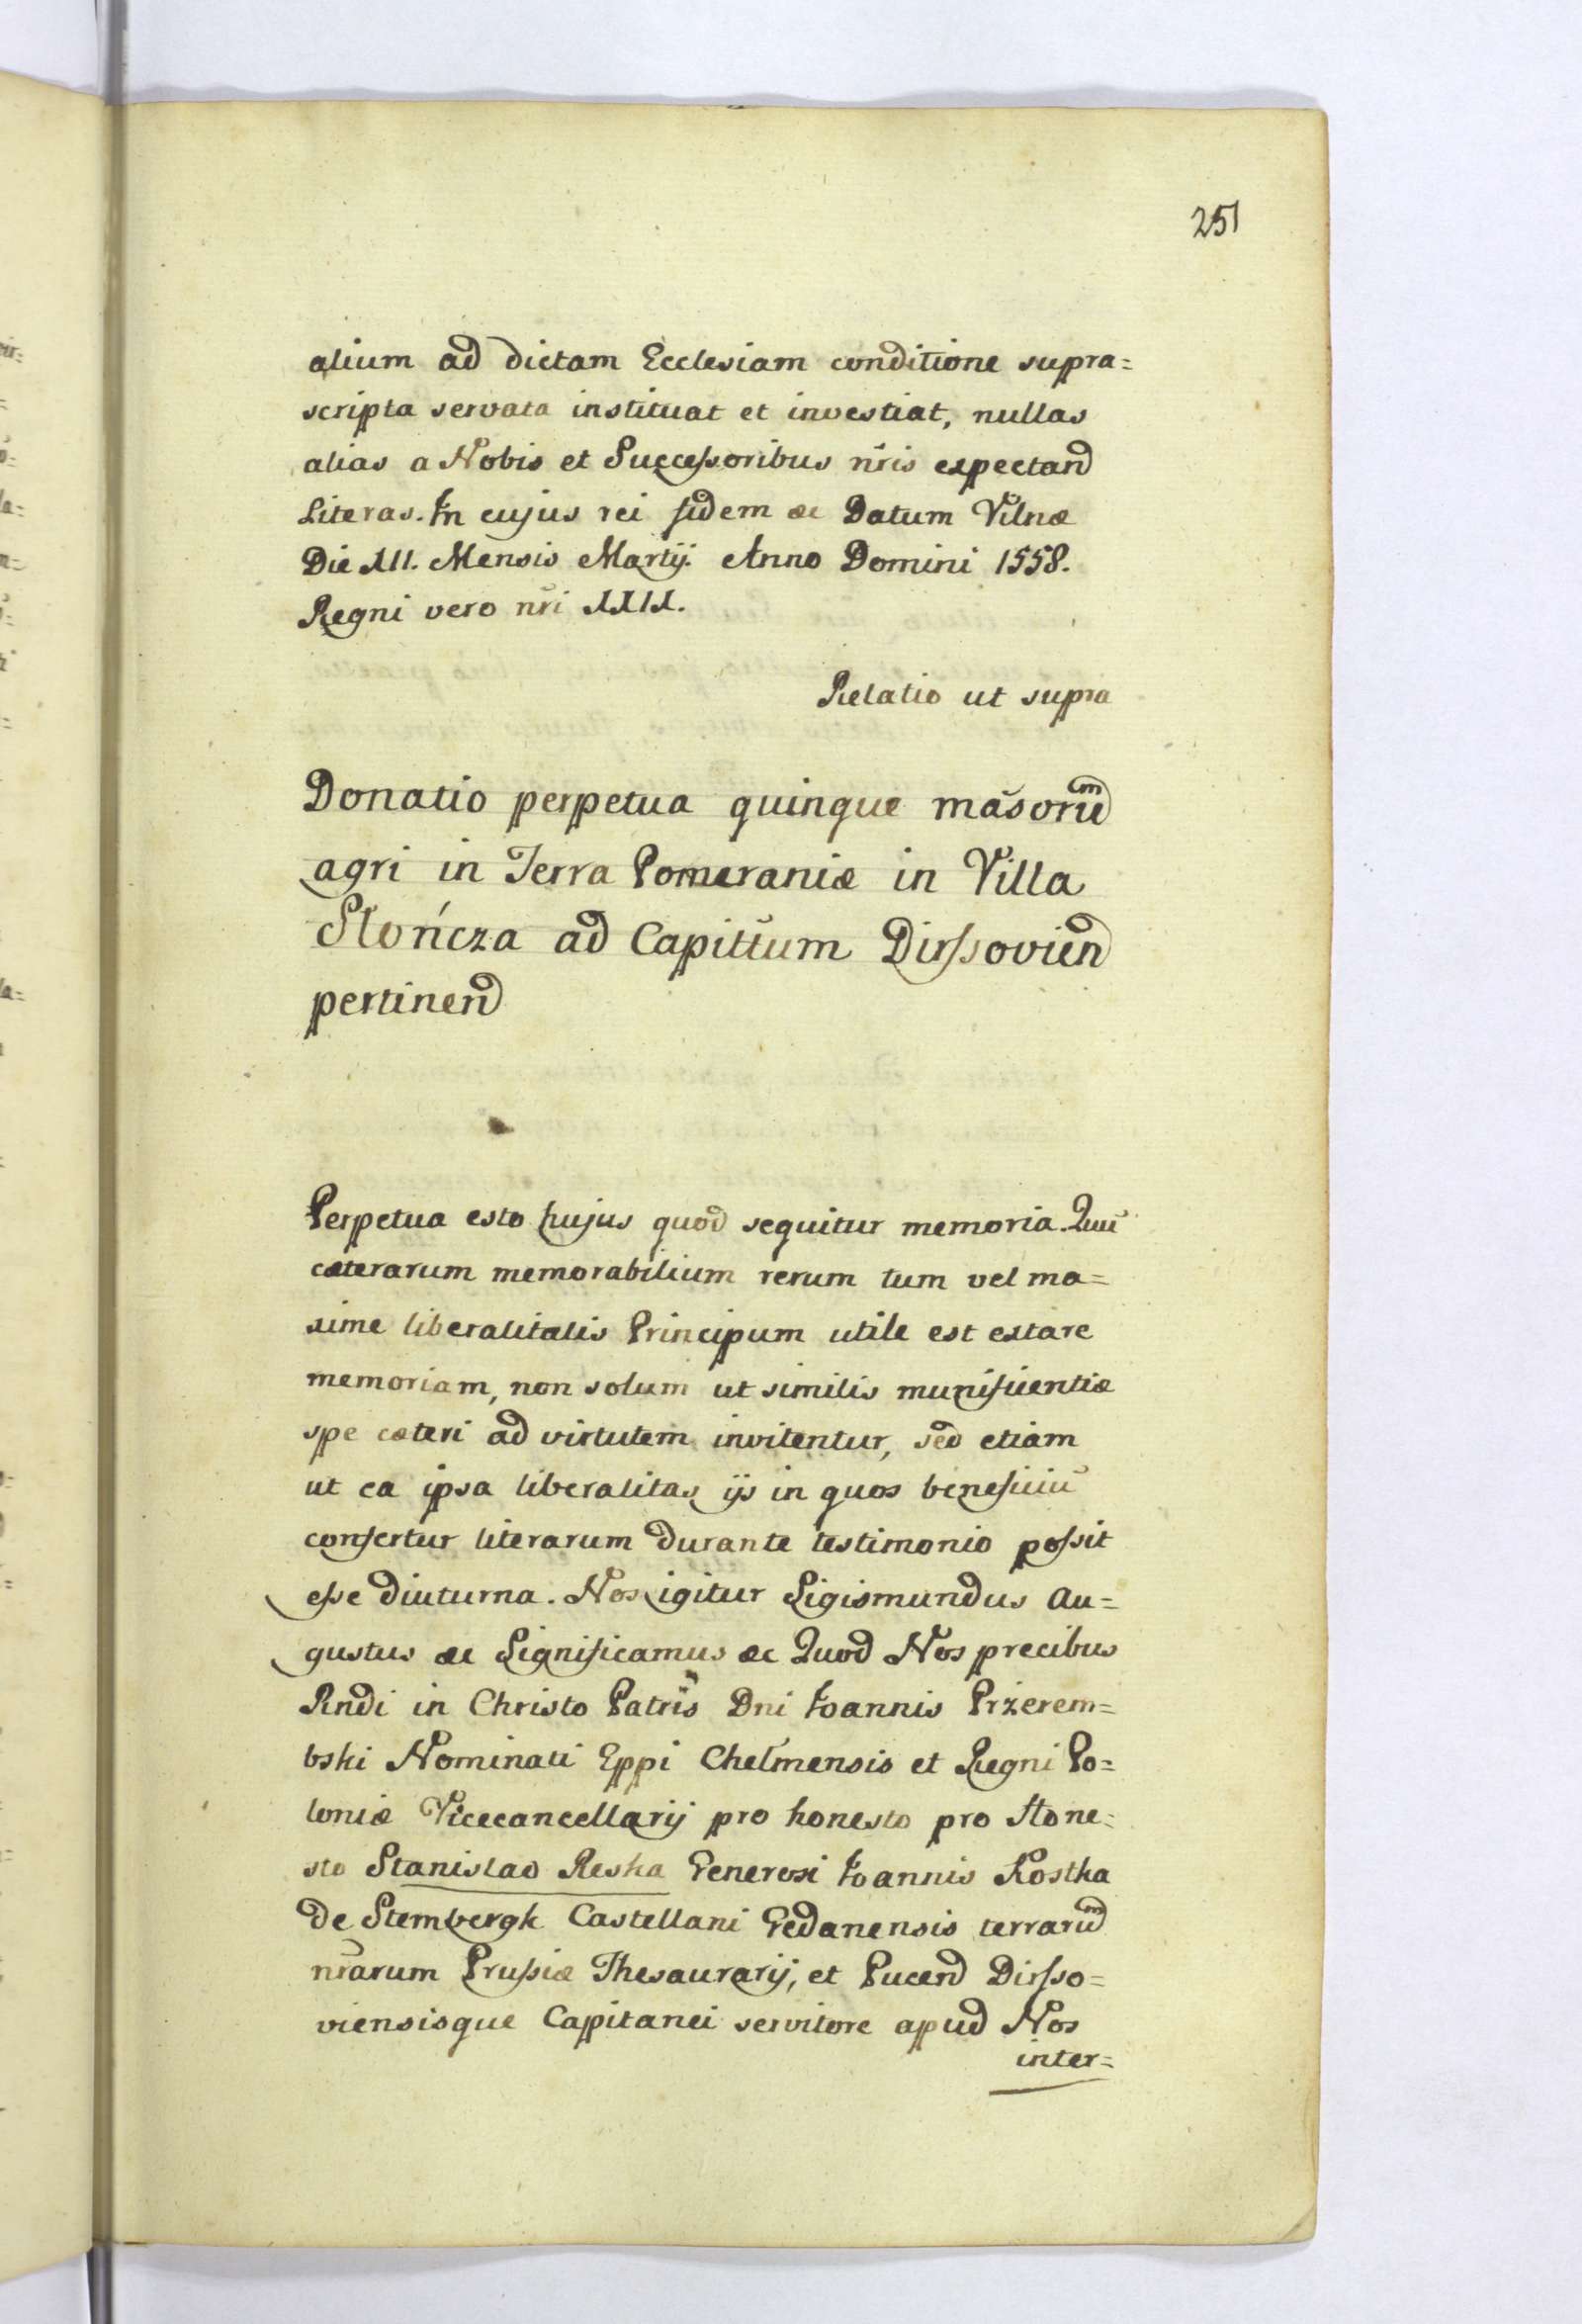 251
alium ad dictam Ecclesiam conditione supra=
scripta servata instituat et investiat, nullas
alias a Nobis et Successoribus nr̃is expectand
Literas. In cujus rei fidem &c Datum Vilnæ
Die XII. Mensis Martij. Anno Domini 1558.
Regni vero nr̃i XXIX.
Relatio ut supra
Donatio perpetua quinque mãsorum
agri in Terra Pomeraniæ in Villa
Słończa ad Capitłum Dirssovien̄d
pertinend
Perpetua esto hujus quod sequitur memoria. Quũ
cæterarum memorabilium rerum tum vel ma=
xime liberalitatis Principum utile est extare
memoriam, non solum ut similis munificentiæ
spe cæteri ad virtutem invitentur, sed etiam
ut ea ipsa liberalitas ijs in quos beneficiũ
confertur literarum durante testimonio possit
esse diuturna. Nos igitur Sigismundus Au=
gustus &c Significamus &c Quod Nos precibus
Rndi in Christo Patris Dni Joannis Przerem=
bski Nominati Eppi Chełmensis et Regni Po=
loniæ Vicecancellarij pro honesto pro Hone=
sto Stanislao Reska Generosi Joannis Kostka
de Stembergk Castellani Gedanensis terrarum
nr̃arum Prussiæ Thesaurarij, et Pucend Dirsso=
viensisque Capitanei servitore apud Nos
inter=